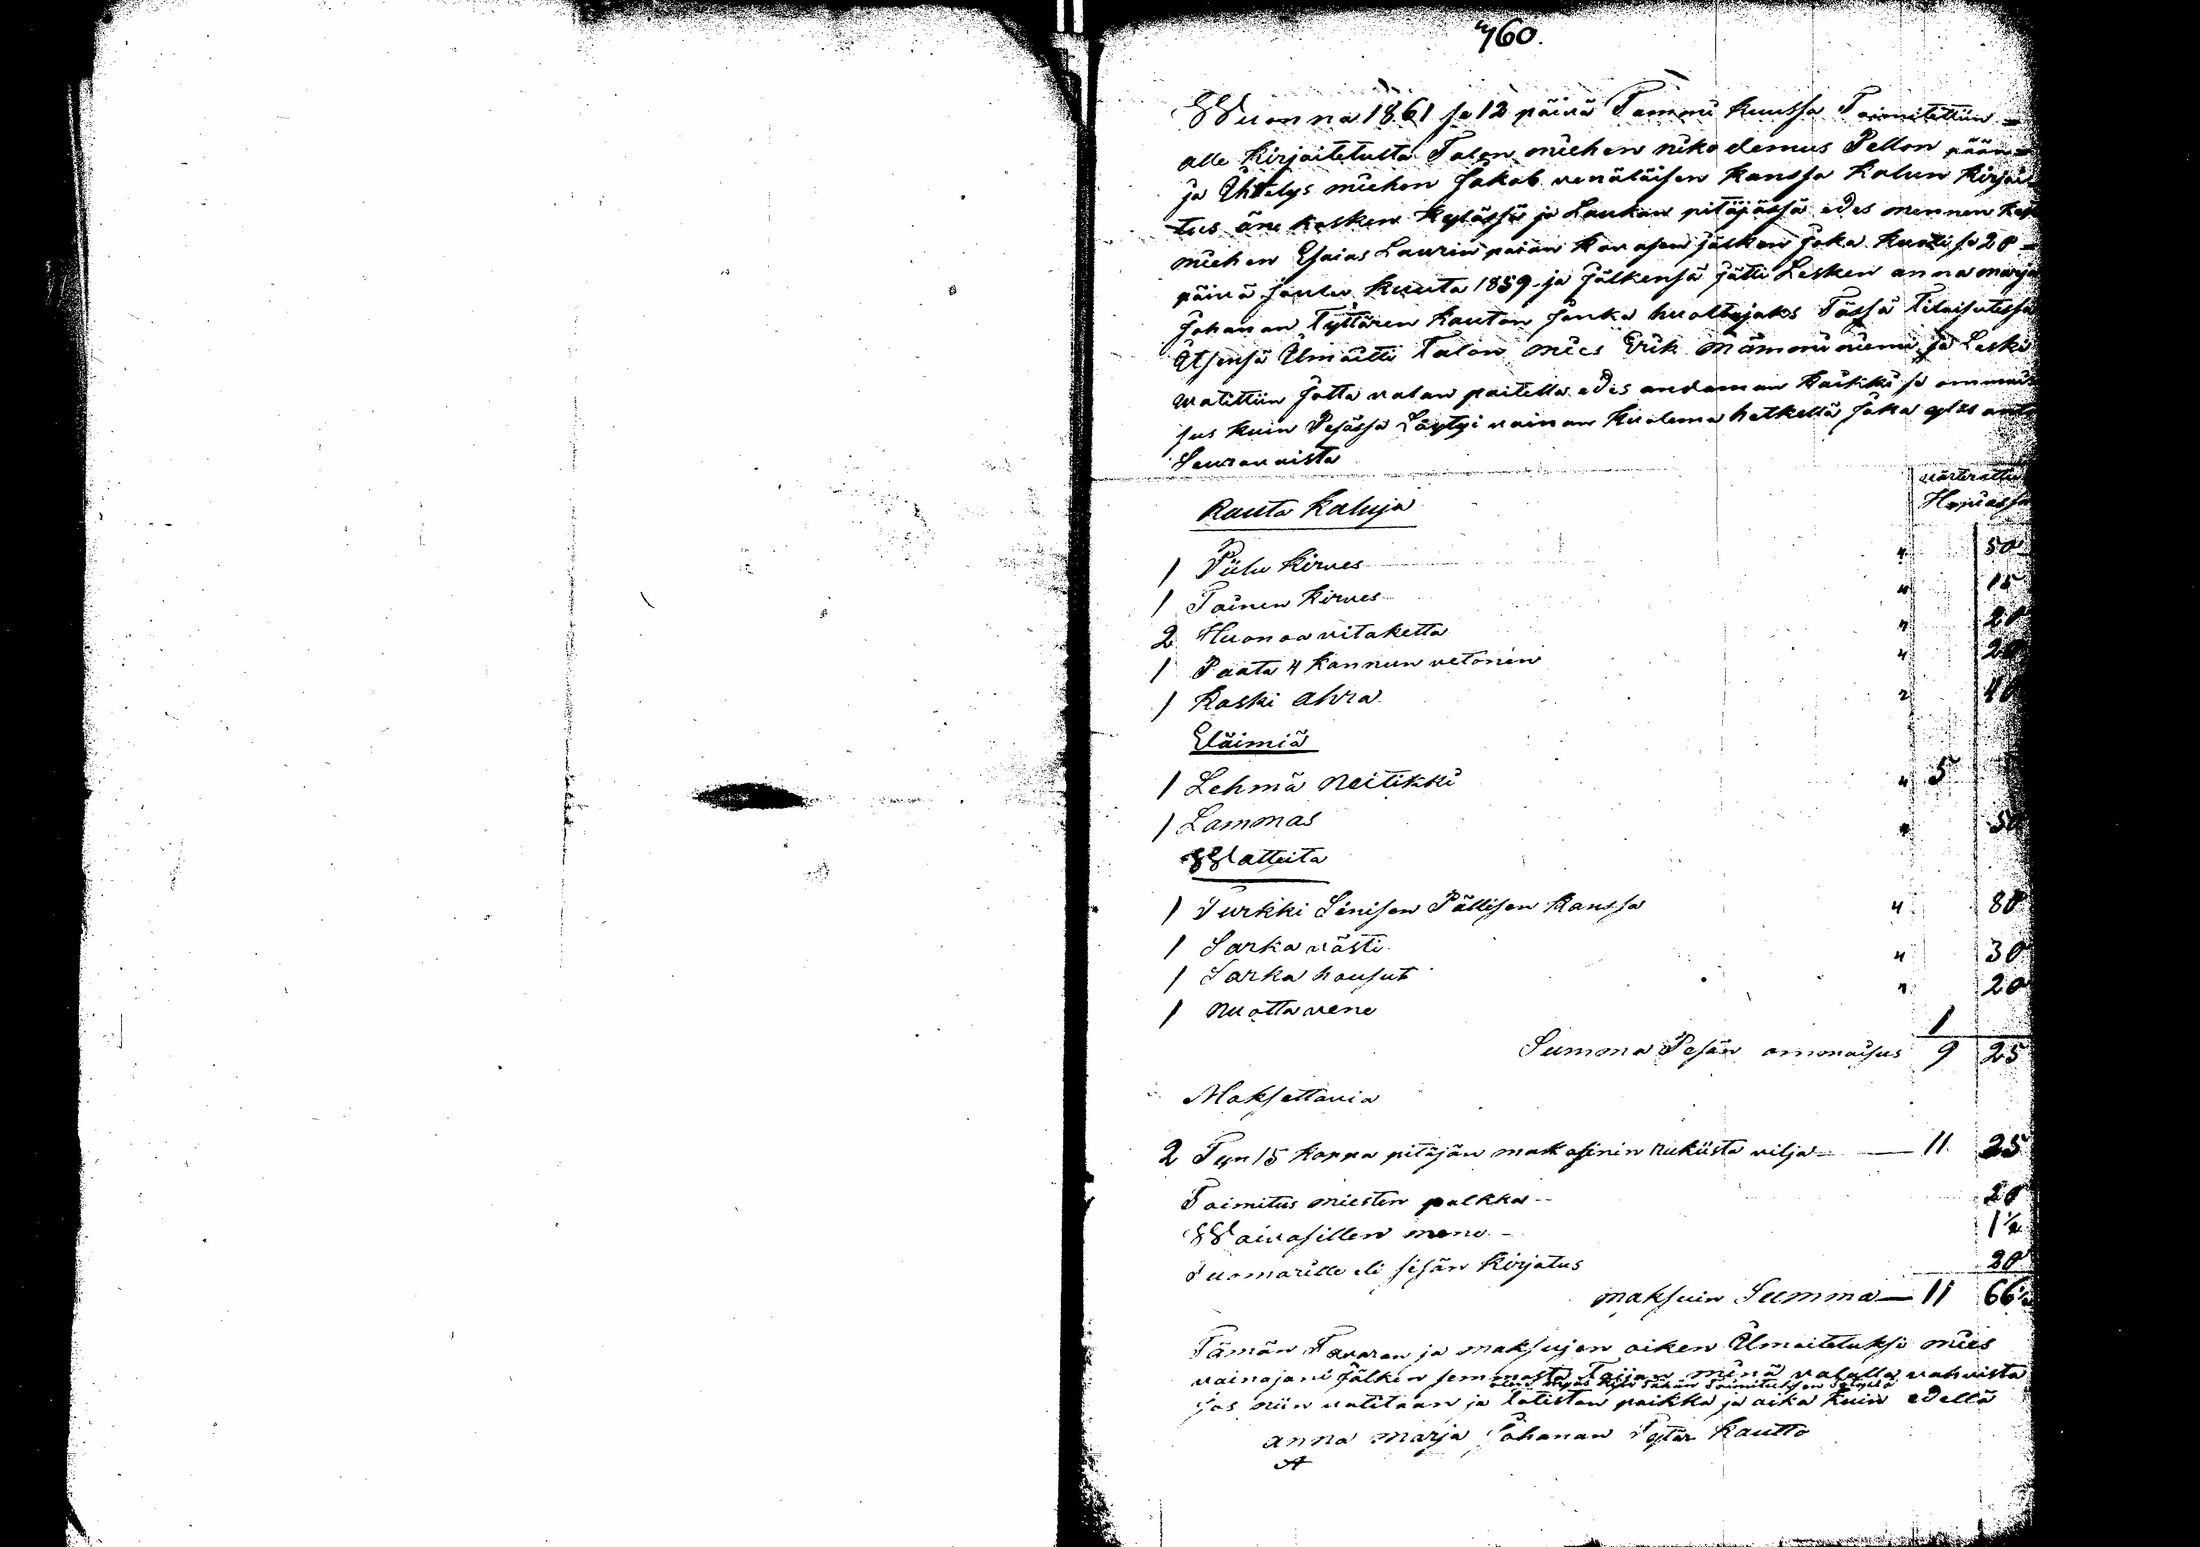 760.
Wuonna 1861 ja 12 päivä Tammi kuussa Toimitettiin
alle kirjoitetulta Talon miehen nikodemus Pellon
ja Ühtelys miehen Jakob venäläisen kanssa kalun kirjoi
tus äne kosken kylässä ja Laukan pitäjässä edes mennen
miehen Esaias Laurin poian jälken joka kuoli se 28
päivä joulu kuuta 1859 ja jälkensä jätti Lesken anna marja
Johanan Tyttären kauton jonka huoltajaks Tässä Tilaisutessa
Itsensä Ilmoitti Talon mies Erik mämminiemi ja Leski
vatittiin jotta valan paitella edes andaman kaikki se ommai
sus kuin Pesässä Löytyi vainan kuolema hetkellä joka
Seuravaista
värderattu
Hopiassa
Rauta kaluja
1 Piilu kirves " 50
1 Toinen kirves " 15
2 Huonoa vitaketta " 20
1 Paata 4 kannun vetonen " 20
1 kaski ahra " 40
Eläimiä
1 Lehmä neitikki " 5
1 Lammas " 50
Watteita
1 Turkki Sinisen Pällisen kanssa " 80
1 Sarka västi " 30
1 Sarka housut " 20
1 nuotta vene 1
Summa Pesän ommaisus 9 25
Maksettavia
2 Tyn 15 kappa pitäjän makasinin rukiista vilja — 11 25
Toimitus miesten palkka 20
Waivasillen meno 1½
Tuomarille eli sisän kirjatus 20
maksuin Summa — 11 66½
Tämän Tavaran ja maksujen oiken Ilmoitetuksi mies
vainajani jälken semmosta Taijan minä valalla vahvista
olen myös tähän Toimituksen
jos niin vatitaan ja Totistan paikka ja aika kuin edellä
anna marja Johanan Tytär kautto
A